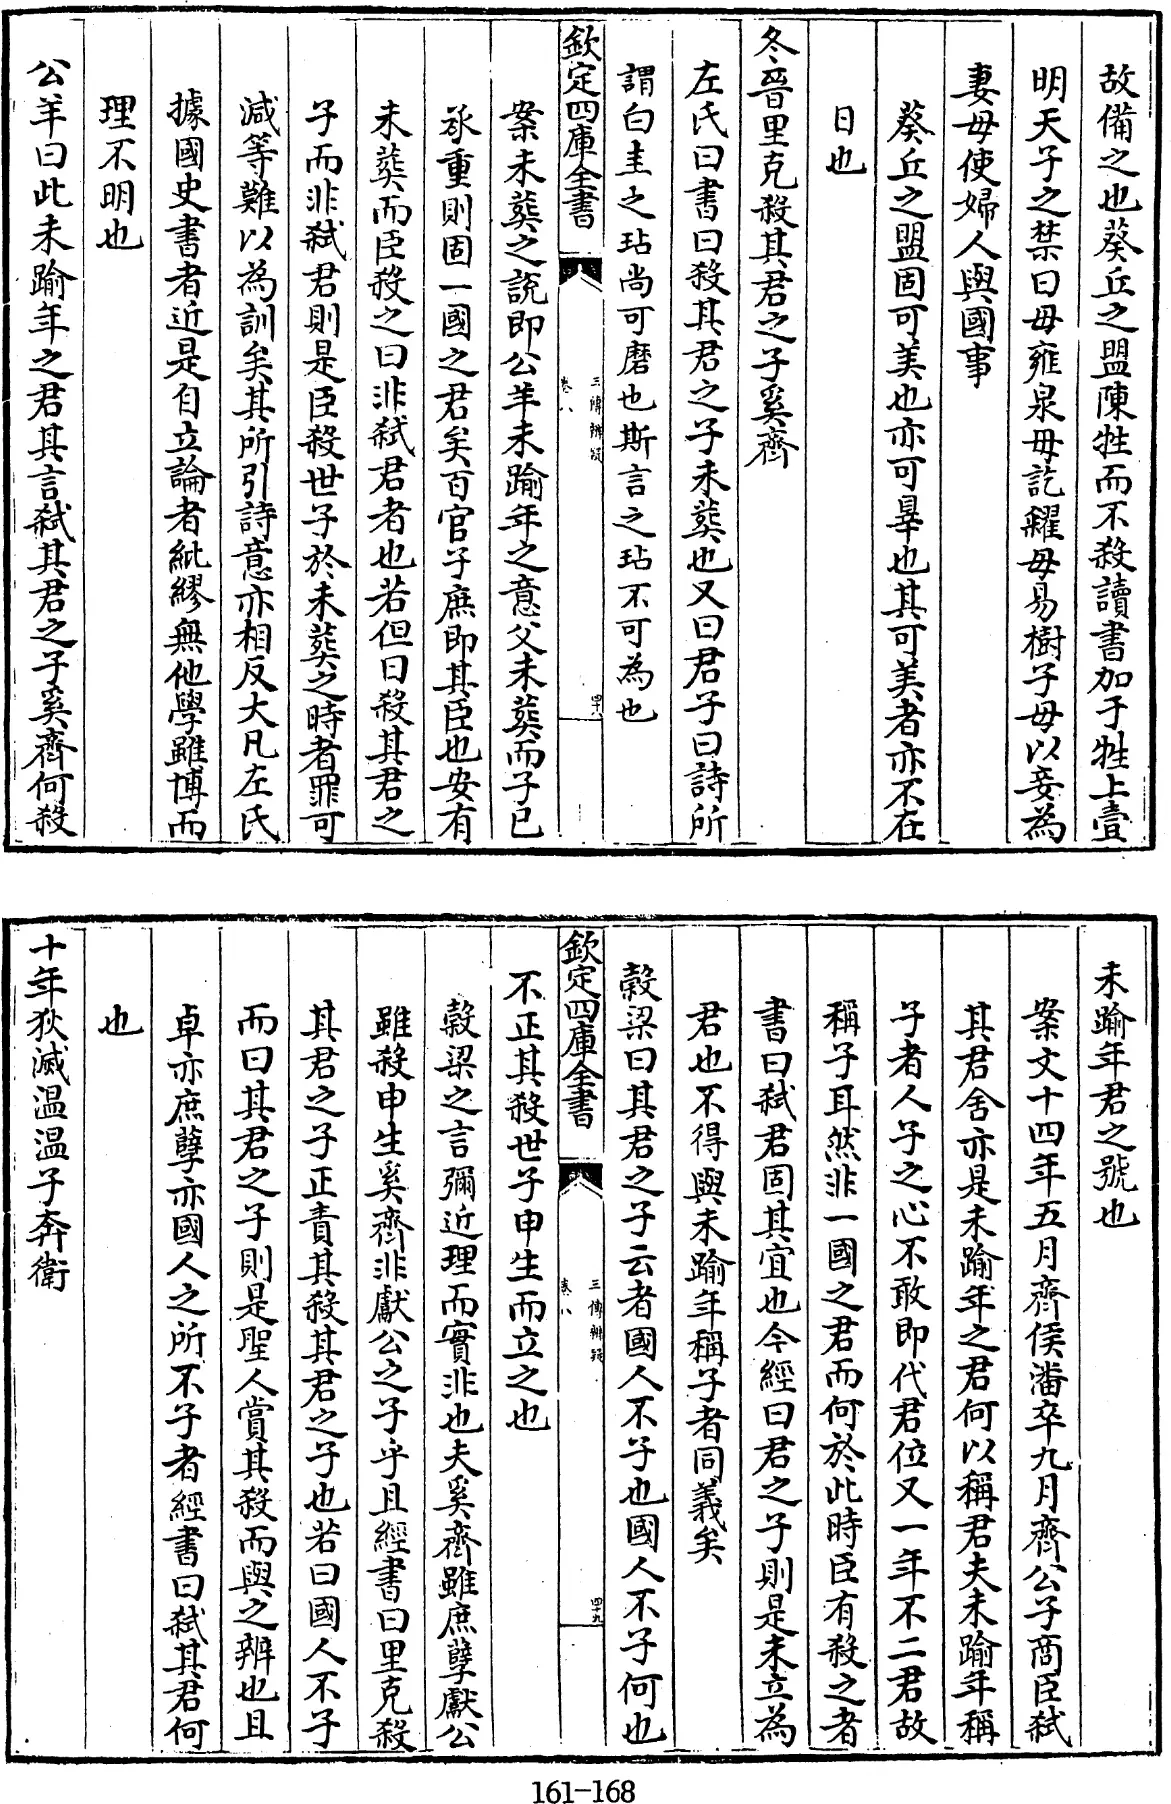 故備之也葵丘之盟陳牲而不殺讀書加于牲上壹
明天子之禁曰毋雍泉毋訖糴毋易樹子毋以妾為
妻毋使婦人與國事
葵丘之盟固可美也亦可辠也其可美者亦不在
日也
冬晉里克殺其君之子奚齊
左氏曰書曰殺其君之子未葬也又曰君子曰詩所
謂白圭之玷尚可磨也斯言之玷不可為也
欽定四庫全書
三傳辨疑
卷八
四十八
案未葬之說即公羊未踰年之意父未葬而子已
承重則固一國之君矣百官子庶即其臣也安有
未葬而臣殺之曰非弒君者也若但曰殺其君之
子而非弒君則是臣殺世子於未葬之時者罪可
減等難以為訓矣其所引詩意亦相反大凡左氏
據國史書者近是自立論者紕繆無他學雖博而
理不明也
公羊曰此未踰年之君其言弒其君之子奚齊何殺
未踰年君之號也
案文十四年五月齊侯潘卒九月齊公子商臣弒
其君舍亦是未踰年之君何以稱君夫未踰年稱
子者人子之心不敢即代君位又一年不二君故
稱子耳然非一國之君而何於此時臣有殺之者
書曰弒君固其宜也今經曰君之子則是未立為
君也不得與未踰年稱子者同義矣
穀梁曰其君之子云者國人不子也國人不子何也
欽定四庫全書
三傳辨疑
卷八
四十九
不正其殺世子申生而立之也
穀梁之言彌近理而實非也夫奚齊雖庶孽獻公
雖殺申生奚齊非獻公之子乎且經書曰里克殺
其君之子正責其殺其君之子也若曰國人不子
而曰其君之子則是聖人賞其殺而與之辨也且
卓亦庶孽亦國人之所不子者經書曰弒其君何
也
十年狄滅温温子奔衛
161-168